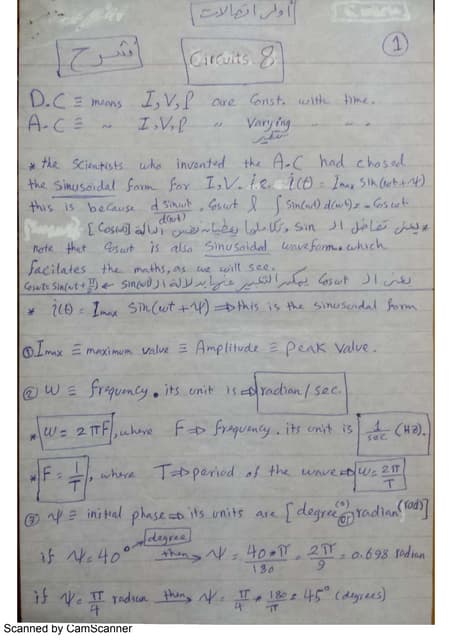 أولى اتصالات
شرح
Circuits. 8
1
D.C ≡ means I,V,P are Const. with time.
A.C ≡ " I,V,P " Varying " "
* the Scientists who invented the A.C had chosed
the Sinusoidal form for I,V. i.e. i(t) = Imax Sin(ωt+Ψ)
this is because d sinωt / d(ωt) = Cosωt & ∫ Sin(ωt) d(ωt) = -Cosωt
* يعنى تفاضل الـ Sin وتكاملها يعطينا نفس الدالة [Cosωt]
note that Cosωt is also Sinusoidal waveform. which
facilates the maths, as we will see.
يعنى الـ Cosωt يمكن التعبير عنها بدلالة الـ Sin(ωt) ← Cosωt = Sin(ωt+π/2)
* i(t) = Imax Sin(ωt+Ψ) ⇒ this is the sinusoidal form
① Imax ≡ maximum value ≡ Amplitude ≡ peak value.
② W ≡ frequency. its unit is ⇒ radian/sec.
* W = 2πF, where F ⇒ frequency. its unit is 1/sec (HZ).
* F = 1/T, where T ⇒ period of the wave ⇒ W = 2π/T
③ Ψ ≡ initial phase ⇒ its units are [degree(°) or radian(rad)]
if Ψ = 40° degree then → Ψ = 40*π/180 = 2π/9 = 0.698 radian
if Ψ = π/4 radian then → Ψ = π/4 * 180/π = 45° (degrees)
Scanned by CamScanner